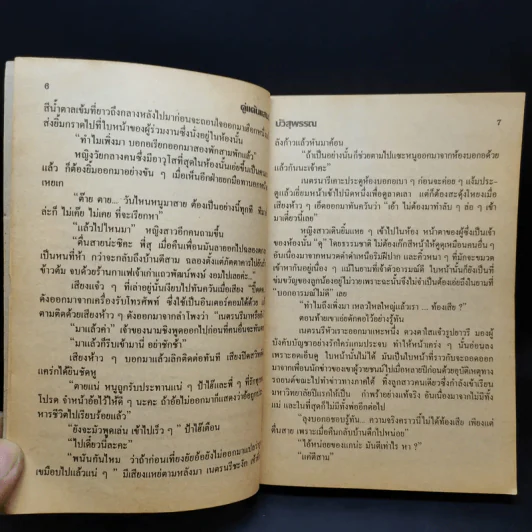 6
สีน้ำตาลเข้มที่ยาวถึงกลางหลังไปมาก่อนจะถอนใจออกมาเฮือก
ส่งยิ้มกราดไปที่ใบหน้าของผู้ร่วมงานซึ่งนั่งอยู่ในห้องนั้น
“ทำไมเพิ่งมา บอกอเรียกออกมาสองพักสามพักแล้ว”
หญิงวัยกลางคนซึ่งมีอาวุโสที่สุดในห้องนั้นเอ่ยขึ้น
แล้ว ก็ต้องยิ้มออกมาอย่างขัน ๆ เมื่อเห็นอีกฝ่ายยกมือทาบอก
เหยเก
“ต๊าย ตาย... วันไหนหนูมาสาย ต้องเป็นอย่างนี้ทุกที
ล่ะก็ ไม่เค้ย ไม่เคย ที่จะเรียกหา”
“แล้วไปไหนมา” หญิงสาวอีกคนถามขึ้น
“ตื่นสายน่ะซิคะ พี่สุ เมื่อคืนเพื่อนมันลากออกไปฉลอง
เป็นหนที่ห้า กว่าจะกลับถึงบ้านตีสาม ฉลองตั้งแต่ภัตตาคารไปถึง
ข้าวต้ม จบด้วยร้านกาแฟเจ้าเก่าแถวพัฒน์พงษ์ งอมไปเลยค่ะ...”
เสียงแจ๋ว ๆ ที่เล่าอยู่นั้นเงียบไปทันควันเมื่อเสียง
ดังออกมาจากเครื่องรับโทรศัพท์ ซึ่งใช้เป็นอินเตอร์คอมได้ด้วย
ตามติดด้วยเสียงห้าว ๆ ดังออกมาจากลำโพงว่า
“มาแล้วค่า” เจ้าของนามชิงพูดออกไปก่อนที่คนอื่นจะ
“มาแล้วก็รีบเข้ามานี่ อย่าชักช้า”
เสียงห้าว ๆ บอกมาแล้วเลิกติดต่อทันที
แคร่กได้ยินชัดหู
“ตายแน่ หนูถูกรับประทานแน่ ๆ ป้าไล้และพี่ ๆ ที่
โปรด จำหน้าอ้อยไว้ให้ดี ๆ นะคะ ถ้าอ้อยไม่ออกมาก็แสดงว่า
หารชีวิตไปเรียบร้อยแล้ว”
“ยังจะมัวพูดเล่น เข้าไปเร็ว ๆ” ป้าไล้เตือน
“ไปเดี๋ยวนี้ละคะ”
“พนันกันไหม ว่าถ้าก่อนเที่ยงยัยอ้อยังไม่ออกมา
เขมือบไปแล้วแน่ ๆ” มีเสียงแหย่ตามหลังมา
นวิสุพรรณ
7
ลังก้าวแล้วหันมาค้อน
“ถ้าเป็นอย่างนั้นก็ช่วยตามไปแซะหนูออกมาจากห้องบอกอด้วย
แล้วกันนะเจ้าคะ”
เนตรนรีเคาะประตูห้องบอกอเบา ๆ ก่อนจะค่อย ๆ แง้มประ-
ตูแล้วเยี่ยมหน้าเข้าไปนิดหนึ่งเพื่อดูลาดเลา แต่ก็ต้องสะดุ้งโหยงเมื่อ
เสียงห้าว ๆ เอ็ดออกมาทันควันว่า “เอ้า ไม่ต้องมาทำลับ ๆ ล่อ ๆ เข้า
มาเดี๋ยวนี้เลย”
หญิงสาวเดินยิ้มแหย ๆ เข้าไปในห้อง หน้าตาของผู้ซึ่งเป็นเจ้า
ของห้องนั้น “ดุ” โดยธรรมชาติ ไม่ต้องเก๊กสีหน้าให้ดูดุเหมือนคนอื่น ๆ
อันเนื่องมาจากหนวดดำดำเหนือริมฝีปาก และคิ้วหนา ๆ ที่มักจะขมวด
เข้าหากันอยู่เนือง ๆ แม้ในยามที่เจ้าตัวอารมณ์ดี ใบหน้านั้นก็ยังเป็นที่
ข่มขวัญของลูกน้องอยู่ไม่วายเพราะฉะนั้นจึงไม่จำเป็นต้องเอ่ยถึงในยามที่
“บอกอารมณ์ไม่ดี” เลย
“ทำไมถึงเพิ่งมา เหลวไหลใหญ่แล้วเรา ... ท้องเสีย ?”
ตอนท้ายเขาเอ่ยดักคอไว้อย่างรู้ทัน
เนตรนรีหัวเราะออกมาแหะหนึ่ง ดวงตาใสแจ๋วรูปยาวรี มองผู้
บังคับบัญชาอย่างรักใคร่แกมประจบ ทำให้หน้าเคร่ง ๆ นั้นอ่อนลง
เพราะอดเอ็นดู ใบหน้านั้นไม่ได้ มันเป็นใบหน้าที่ราวกับจะถอดออก
มาจากเพื่อนนักข่าวของเขาผู้วายชนม์ไปเมื่อหลายปีก่อนด้วยอุบัติเหตุทาง
รถยนต์ขณะไปทำข่าวทางภาคใต้ ทิ้งลูกสาวคนเดียวซึ่งกำลังเข้าเรียน
มหาวิทยาลัยปีแรกให้เป็น กำพร้าอย่างแท้จริง อันเนื่องมาจากไม่มีทั้ง
แม่ และในที่สุดก็ไม่มีทั้งพ่ออีกต่อไป
“ลุงบอกอชอบรู้ทัน... ความจริงคราวนี้ไม่ได้ท้องเสีย เพียงแต่
ตื่นสาย เพราะเมื่อคืนกลับบ้านดึกไปหน่อย”
“ไอ้หน่อยของแกน่ะ มันตีเท่าไร หา ?”
“แค่ตีสาม”